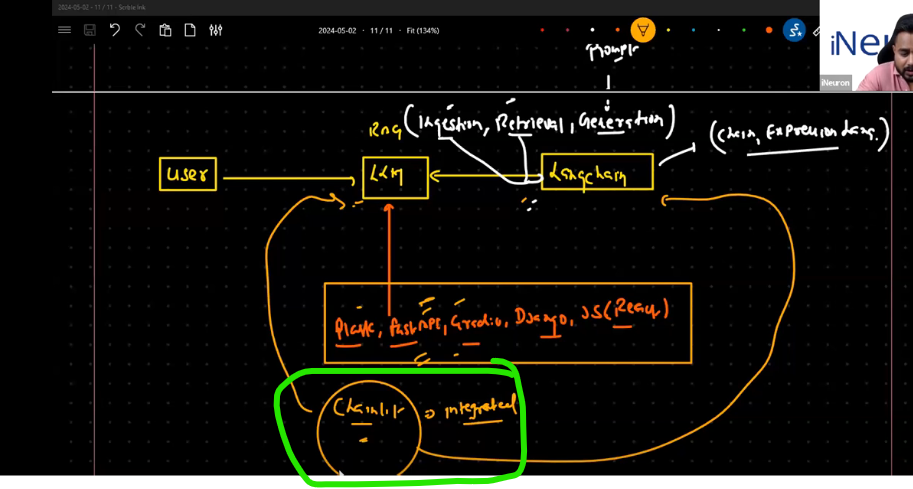 2024-05-02 - 11 / 11 - Scribble Ink
2024-05-02 • 11 / 11 • Fit (134%)
iNeuron
Prompt
RAG (Ingestion, Retrieval, Generation)
(Chain, Expression Lang.)
User
LLM
Langchain
Flask, FastAPI, Gradio, Django, JS(React)
Chainlit ⇒ integrated